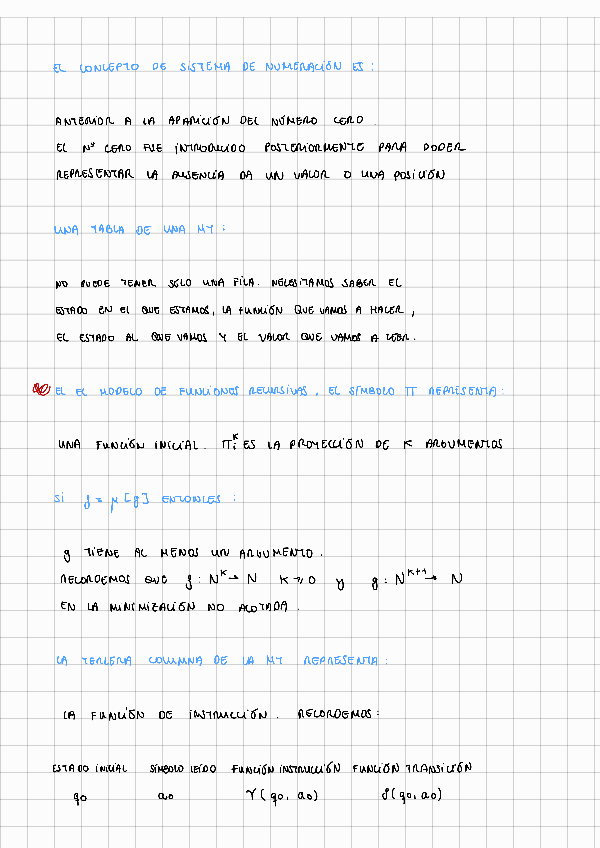 EL CONCEPTO DE SISTEMA DE NUMERACIÓN ES:
ANTERIOR A LA APARICIÓN DEL NÚMERO CERO.
EL Nº CERO FUE INTRODUCIDO POSTERIORMENTE PARA PODER
REPRESENTAR LA AUSENCIA DA UN VALOR O UNA POSICIÓN
UNA TABLA DE UNA MT:
NO PUEDE TENER SOLO UNA FILA. NECESITAMOS SABER EL
ESTADO EN EL QUE ESTAMOS, LA FUNCIÓN QUE VAMOS A HACER,
EL ESTADO AL QUE VAMOS Y EL VALOR QUE VAMOS A LEER.
EL EL MODELO DE FUNCIONOS RECURSIVAS, EL SÍMBOLO Π REPRESENTA:
UNA FUNCIÓN INICIAL. Πᵢᴷ ES LA PROYECCIÓN DE K ARGUMENTOS
SI f = μ[g] ENTONCES:
g TIENE AL MENOS UN ARGUMENTO.
RECORDEMOS QUE f: Nᴷ → N K ≥ 0 y g: Nᴷ⁺¹ → N
EN LA MINIMIZACIÓN NO ACOTADA.
LA TERCERA COLUMNA DE LA MT REPRESENTA:
LA FUNCIÓN DE INSTRUCCIÓN. RECORDEMOS:
ESTADO INICIAL SÍMBOLO LEÍDO FUNCIÓN INSTRUCCIÓN FUNCIÓN TRANSICIÓN
q0 a0 γ(q0, a0) δ(q0, a0)